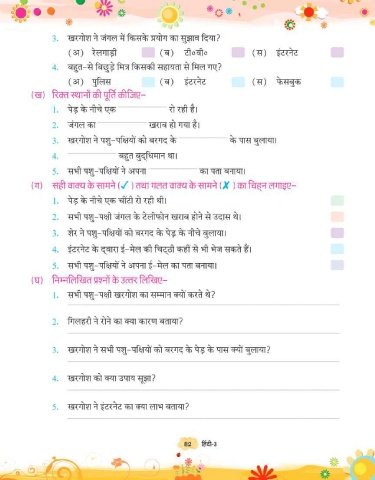 3. खरगोश ने जंगल में किसके प्रयोग का सुझाव दिया?
(अ) रेलगाड़ी (ब) टी०वी० (स) इंटरनेट
4. बहुत-से बिछुड़े मित्र किसकी सहायता से मिल गए?
(अ) पुलिस (ब) इंटरनेट (स) फेसबुक
(ख) रिक्त स्थानों की पूर्ति कीजिए–
1. पेड़ के नीचे एक रो रही है।
2. जंगल का खराब हो गया है।
3. खरगोश ने पशु-पक्षियों को बरगद के के पास बुलाया।
4. बहुत बुद्धिमान था।
5. सभी पशु-पक्षियों ने अपना का पता बनाया।
(ग) सही वाक्य के सामने (✓) तथा गलत वाक्य के सामने (✗) का चिह्न लगाइए–
1. पेड़ के नीचे एक चींटी रो रही थी।
2. सभी पशु-पक्षी जंगल के टेलीफोन खराब होने से उदास थे।
3. शेर ने पशु-पक्षियों को बरगद के पेड़ के नीचे बुलाया।
4. इंटरनेट के द्वारा ई-मेल की चिट्ठी कहीं से भी भेज सकते हैं।
5. सभी पशु-पक्षियों ने अपना ई-मेल का पता बनाया।
(घ) निम्नलिखित प्रश्नों के उत्तर लिखिए–
1. सभी पशु-पक्षी खरगोश का सम्मान क्यों करते थे?
2. गिलहरी ने रोने का क्या कारण बताया?
3. खरगोश ने सभी पशु-पक्षियों को बरगद के पेड़ के पास क्यों बुलाया?
4. खरगोश को क्या उपाय सूझा?
5. खरगोश ने इंटरनेट का क्या लाभ बताया?
82 हिंदी-3